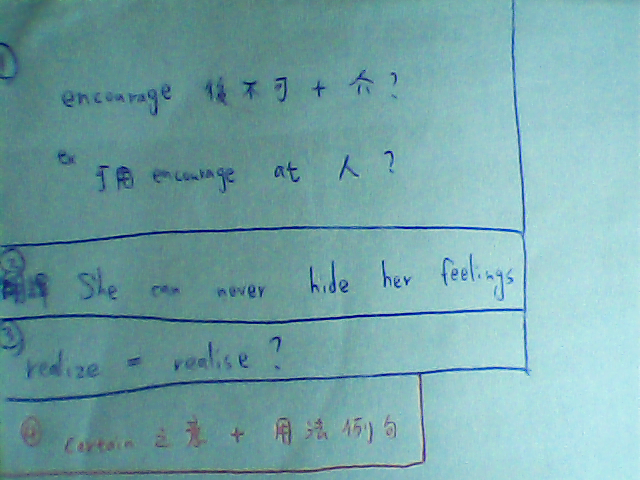 ①
encourage 後不可 + 介?
ex 可用 encourage at 人?
②
She can never hide her feelings
③
realize = realise?
④ certain 之意 + 用法例句